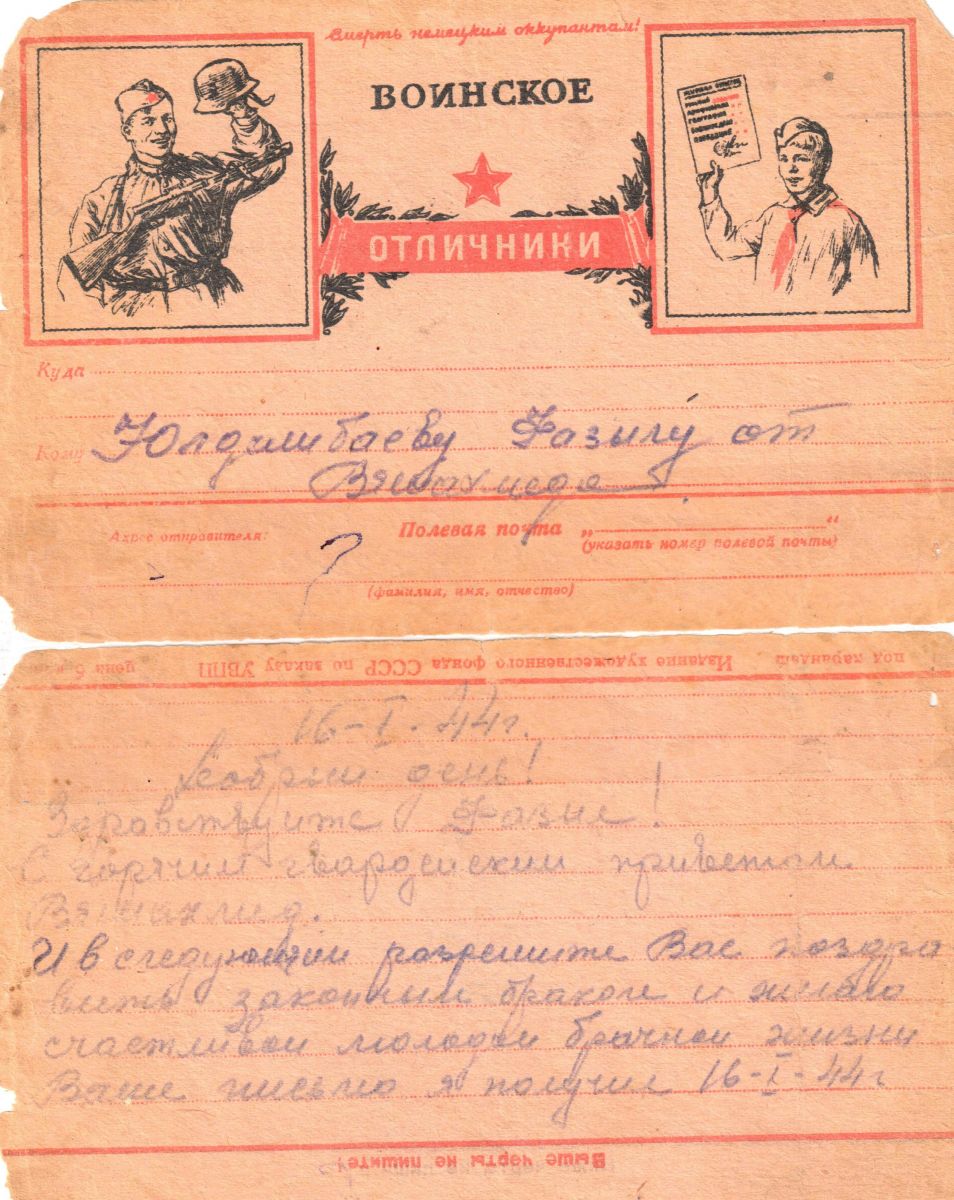 Смерть немецким оккупантам!
ВОИНСКОЕ
ОТЛИЧНИКИ
Куда
Кому Юлдашбаеву Фазылу от
Вялиахмеда
Адрес отправителя:
Полевая почта „ “
(указать номер полевой почты)
(фамилия, имя, отчество)
Издание художественного фонда СССР по заказу УВПП цена
16-I-44г.
Добрый день!
Здравствуйте Фазыл!
С горячим гвардейским приветом
Вялиахмед.
И в следующем разрешите Вас поздра
вить законным браком и желаю
счастливой молодой брачной жизни
Ваше письмо я получил 16-I-44г
Выше черты не пишите!